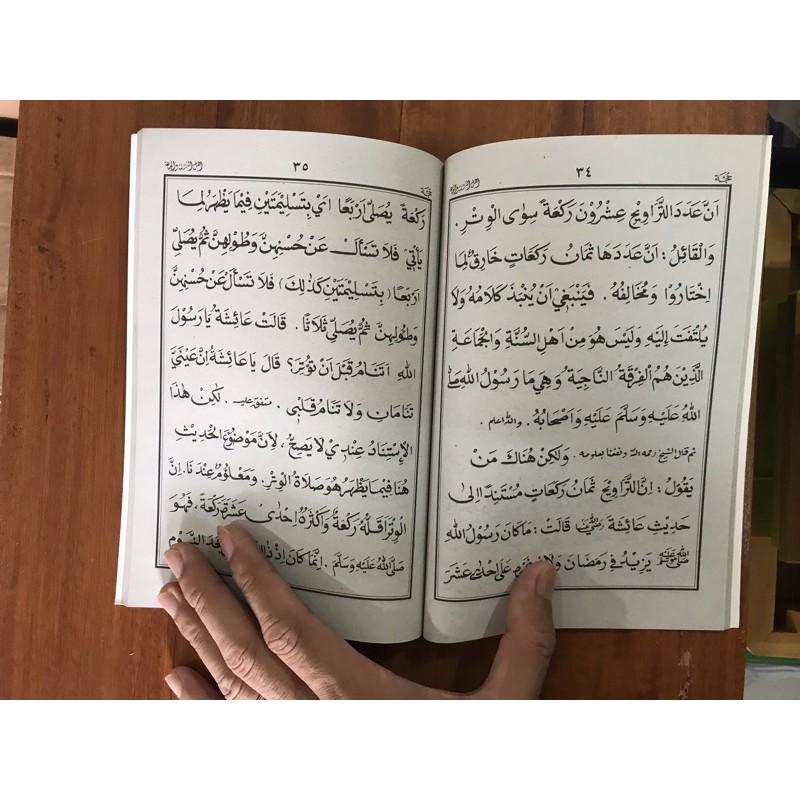 ٣٤
حجّة
اَنَّ عَدَدَ التَّرَاوِيْحِ عِشْرُوْنَ رَكْعَةً سِوَى الْوِتْرِ .
وَالْقَائِلُ : اَنَّ عَدَدَهَا ثَمَانُ رَكَعَاتٍ خَارِقٌ لِمَا
اِخْتَارُوْا وَمُخَالِفُهُ . فَيَنْبَغِيْ اَنْ يُنْبَذَ كَلَامُهُ وَلَا
يُلْتَفَتَ اِلَيْهِ وَلَيْسَ هُوَ مِنْ اَهْلِ السُّنَّةِ وَالْجَمَاعَةِ
الَّذِيْنَ هُمُ الْفِرْقَةُ النَّاجِيَةُ وَهِيَ مَا رَسُوْلُ اللهِ صَلَّى
اللهُ عَلَيْهِ وَسَلَّمَ عَلَيْهِ وَاَصْحَابُهُ . والله اعلم .
ثم قال الشيخ رحمه الله ونفعنا بعلومه . وَلٰكِنْ هُنَاكَ مَنْ
يَقُوْلُ : اِنَّ التَّرَاوِيْحَ ثَمَانُ رَكَعَاتٍ مُسْتَنِدًا اِلَى
حَدِيْثِ عَائِشَةَ رضي الله عنها قَالَتْ : مَا كَانَ رَسُوْلُ اللهِ
صلى الله عليه وسلم يَزِيْدُ فِيْ رَمَضَانَ عَلَى اِحْدَى عَشَرَ
٣٥
حجّة
رَكْعَةً يُصَلِّيْ اَرْبَعًا اَيْ بِتَسْلِيْمَتَيْنِ فِيْمَا يَظْهَرُ لِمَا
يَأْتِيْ فَلَا تَسْأَلْ عَنْ حُسْنِهِنَّ وَطُوْلِهِنَّ ثُمَّ يُصَلِّيْ
اَرْبَعًا (بِتَسْلِيْمَتَيْنِ كَذٰلِكَ) فَلَا تَسْأَلْ عَنْ حُسْنِهِنَّ
وَطُوْلِهِنَّ ثُمَّ يُصَلِّيْ ثَلَاثًا . قَالَتْ عَائِشَةُ يَا رَسُوْلَ
اللهِ اَتَنَامُ قَبْلَ اَنْ تُوْتِرَ؟ قَالَ يَا عَائِشَةُ اِنَّ عَيْنَيَّ
تَنَامَانِ وَلَا تَنَامُ قَلْبِيْ . متفق عليه . لٰكِنْ هٰذَا
الْاِسْتِنَادُ عِنْدِيْ لَا يَصِحُّ، لِاَنَّ مَوْضُوْعَ الْحَدِيْثِ
هُنَا فِيْمَا يَظْهَرُ هُوَ صَلَاةُ الْوِتْرِ . وَمَعْلُوْمٌ عِنْدَنَا . اِنَّ
الْوِتْرَ اَقَلُّهُ رَكْعَةٌ وَاَكْثَرُهُ اِحْدَى عَشَرَةَ رَكْعَةً، فَهُوَ
صَلَّى اللهُ عَلَيْهِ وَسَلَّمَ . اِنَّمَا كَانَ اِذْ النَّوْمِ